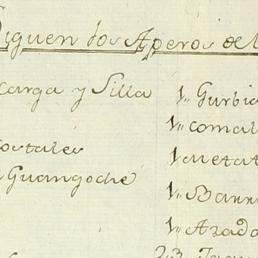 Siguen los Aperos de
Carga y Silla
Costales
Guangoche
1„ Gurbia
1„ Comal
1„ Metat
1„ Barr
1„ Arado